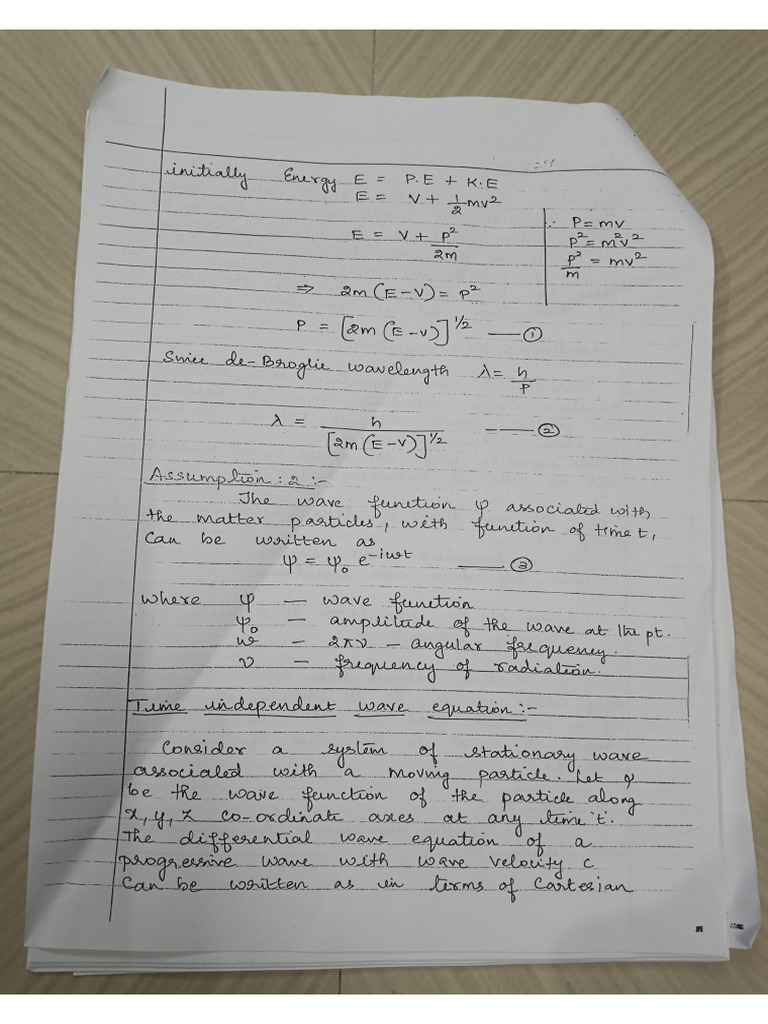 initially Energy E = P.E + K.E
E = V + 1/2 mv²
E = V + P²/2m
∴ P = mv
P² = m²v²
P²/m = mv²
⇒ 2m(E-V) = P²
P = [2m(E-V)]^1/2 —— ①
Since de-Broglie wavelength λ = h/P
λ = h/[2m(E-V)]^1/2 —— ②
Assumption: 2 :-
The wave function ψ associated with
the matter particles, with function of time t,
Can be written as
ψ = ψ₀ e^-iωt —— ③
Where ψ — wave function
ψ₀ — amplitude of the wave at the pt.
w — 2πν - angular frequency.
ν — frequency of radiation.
Time independent wave equation:-
Consider a system of stationary wave
associated with a moving particle. Let ψ
be the wave function of the particle along
x, y, z co-ordinate axes at any time 't'.
The differential wave equation of a
progressive wave with wave velocity c
Can be written as in terms of Cartesian